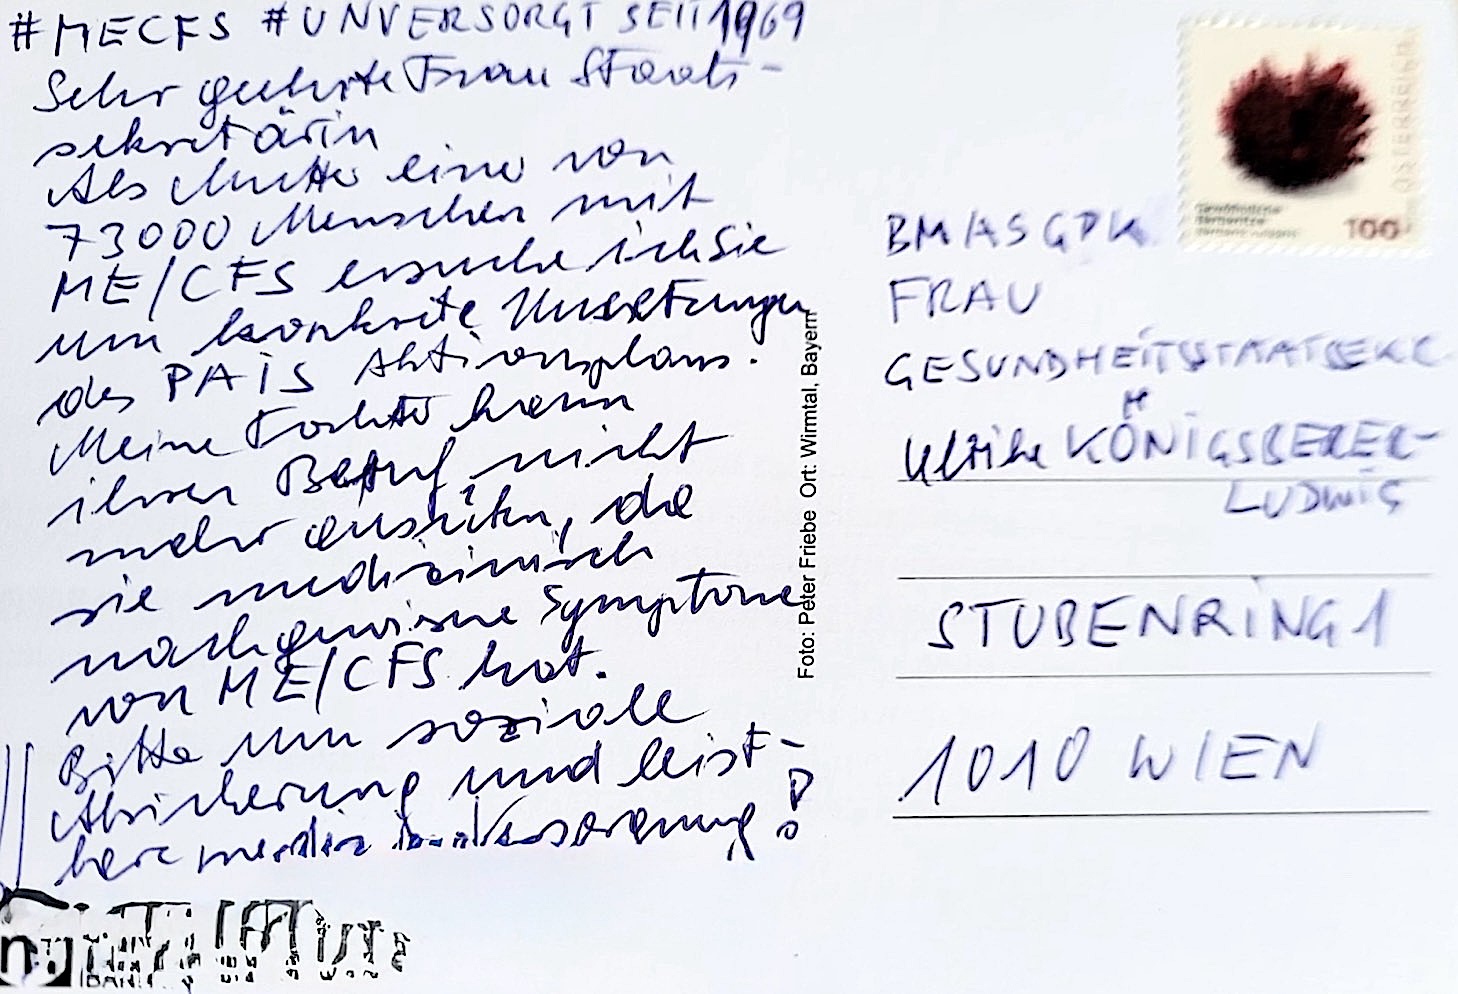 #MECFS #UNVERSORGT SEIT 1969
Sehr geehrte Frau Staats-
sekretärin
Als Mutter einer von
73000 Menschen mit
ME/CFS ersuche ich Sie
um konkrete Umsetzungen
des PAIS Aktionsplans.
Meine Tochter kann
ihren Beruf nicht
mehr ausüben, da
sie medizinisch
nachgewiesene Symptome
von ME/CFS hat.
Bitte um soziale
Absicherung und leist-
bare medizin. Versorgung!
Foto: Peter Friebe Ort: Wirmtal, Bayern
ÖSTERREICH
100
BMASGPK
FRAU
GESUNDHEITSSTAATSSEKR
Ulrike KÖNIGSBERER-
LUDWIG
STUBENRING 1
1010 WIEN